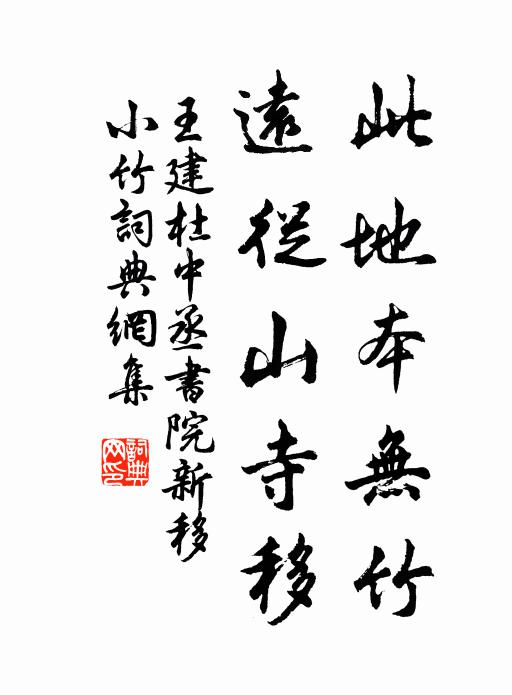 此地本無竹
遠從山寺移
王建杜中丞書院新移
小竹詞典網集
詞典
网印